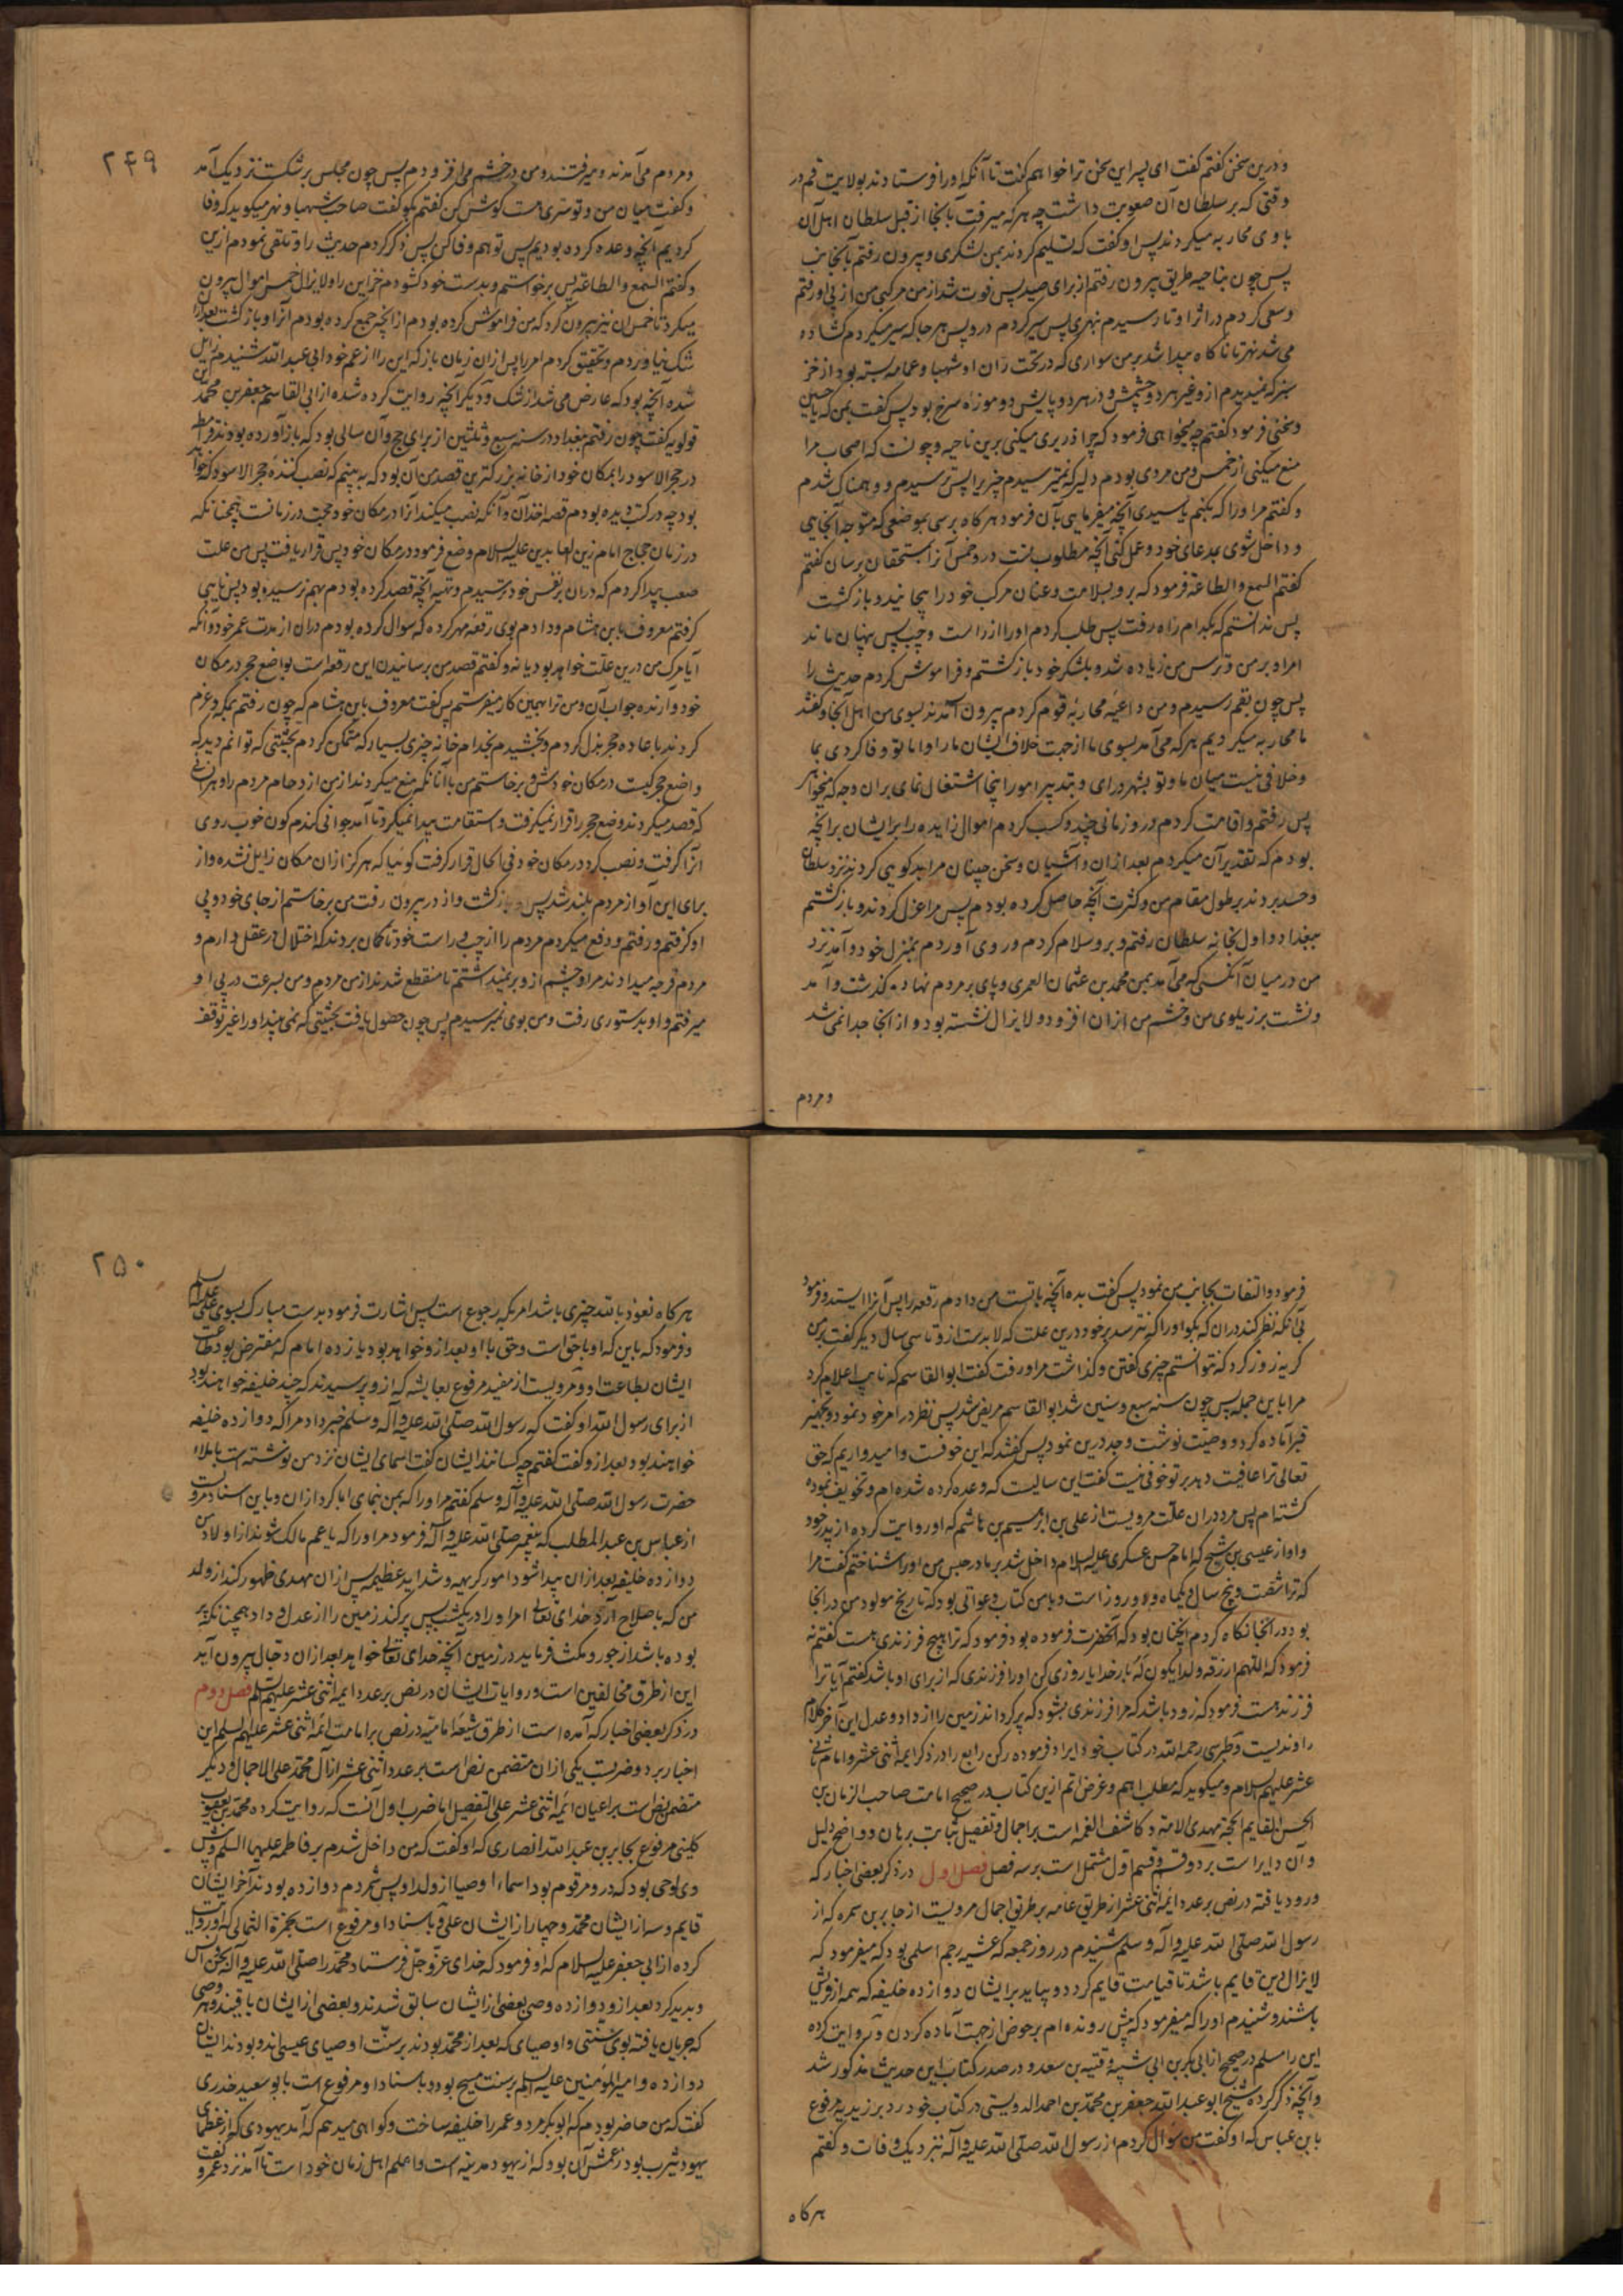 ودرین سخن گفتم گفت ای پسر این سخن ترا خواهم گفت تا آنکه اورا فرستادند بولایت قم در
وقتی که بر سلطان آن صعوبت داشت چه هرکه میرفت بآنجا از قبل سلطان اهل آن
با وی محاربه میکردند پس او گفت که تسلیم کردند بمن لشکری و بیرون رفتم بآنجانب
پس چون بناحیه طریق بیرون رفتم از برای صید پس فوت شد از من مرکبی من از پی او رفتم
وسعی کردم در اثر او تا رسیدم نهری پس سیر کردم درو پس هرجا که سیر میکردم کشاده
می شد نهر تا ناکاه پیدا شد بر من سواری که در تحت ران او شهبا و عمامه بسته بود از خز
سبز که نمیدیدم ازو غیر هردو چشمش و در هردو پایش دو موزه سرخ بود پس گفت بمن که یا حسین
وسخنی فرمود گفتم چه میخواهی فرمود که چرا ذریری میکنی برین ناحیه و چونست که اصحاب مرا
منع میکنی از خمس و من مردی بودم دلیر که نمیترسیدم چیزی را پس ترسیدم و وهمناک شدم
وگفتم مر اورا که بکنم یا سیدی آنچه میفرمایی بآن فرمود هرکاه برسی بموضعی که متوجه آنجایی
و داخل شوی بمدعای خود و عمل کنی آنچه مطلوب تست درو خمس آنرا بمستحقان برسان گفتم
گفتم السمع والطاعة فرمود که برو بسلامت و عنان مرکب خود را بیچانید و بازگشت
پس ندانستم که بکدام راه رفت پس طلب کردم اورا از راست و چپ پس پنهان ماند
امر او بر من و ترس من زیاده شد و بلشکر خود بازگشتم و فراموش کردم حدیث را
پس چون بقم رسیدم و من داعیه محاربه قوم کردم بیرون آمدند بسوی من اهل آنجا و گفتند
ما محاربه میکردیم هرکه می آمد بسوی ما از جهت خلاف ایشان ما را و اما تو وفا کردی بما
وخلافی نیست میان ما و تو بشهر درای و بتدبیر امور اینجا اشتغال نمای بران وجه که میخواهی
پس رفتم و اقامت کردم درو زمانی چند و کسب کردم اموال زایده را برایشان برانچه
بودم که تقدیر آن میکردم بعد ازان و آشیان و سخن چینان مرا بدکویی کردند نزد سلطان
وحسد بردند بر طول مقام من و کثرت آنچه حاصل کرده بودم پس مرا عزل کردند و بازگشتم
ببغداد و اول بخانه سلطان رفتم و برو سلام کردم و روی آوردم بمنزل خود و آمد نزد
من در میان آنکسی که می آمد بمن محمد بن عثمان العمری و پای بر مردم نهاده گذشت و آمد
ونشست بر زیلوی من و خشم من ازان افزود و لایزال نشسته بود و از آنجا جدا نمی شد
ومردم
۲۴۹
ومردم می آمدند و میرفتند و من در خشم می افزودم پس چون مجلس برشکست نزدیک آمد
وگفت میان من و تو سری هست گوش کن گفتم بگو گفت صاحب شهبا و نهر میگوید که وفا
کردیم آنچه وعده کرده بودیم پس تو هم وفا کن پس ذکر کردم حدیث را و تلقی نمودم ازین
وگفتم السمع والطاعة پس برخواستم و بدست خود گشودم خزاین را و لایزال خمس اموال بیرون
میکرد تا خمس آن نیز بیرون کرد که من فراموش کرده بودم از آنچه جمع کرده بودم آنرا و بازگشت بعد ازان
شک نیاوردم و تحقیق کردم امر را پس ازان زمان باز که این را از عم خود ابی عبد الله شنیدم زایل
شده آنچه بود که عارض می شد از شک و دیگر آنچه روایت کرده شده از ابی القاسم جعفر بن محمد بن
قولویه گفت چون رفتم ببغداد در سنه سبع و ثلثین از برای حج و آن سالی بود که باز آورده بودند قرامطه
در حجر الاسود را بمکان خود از خانه بزرکترین قصد من آن بود که به بینم که نصب کننده حجر الاسود که خواهد
بود چه در کتب دیده بودم قصه اخذ آن و آنکه نصب میکند آنرا در مکان خود حجت در زمانست همچنانکه
در زمان حجاج امام زین العابدین علیه السلام وضع فرمود در مکان خود پس قرار یافت پس من علت
صعب پیدا کردم که دران بر نفس خود ترسیدم و تهیه آنچه قصد کرده بودم بهم نرسیده بود پس نایبی
گرفتم معروف بابن هشام و دادم بوی رقعه مهر کرده که سوال کرده بودم دران از مدت عمر خود و آنکه
آیا مرک من درین علت خواهد بود یا نه و گفتم قصد من برسانیدن این رقعه است بواضع حجر در مکان
خود و آرنده جواب آن و من ترا بهمین کار میفرستم پس گفت معروف بابن هشام که چون رفتم بمکه و عزم
کردند باعاده حجر بذل کردم و بخشیدم بخدام خانه چیزی بسیار که متمکن کردم بحیثیتی که توانم دید که
واضع حجر کیست در مکان خودش و برخاستم من با آنانکه منع میکردند از من ازدحام مردم را و هر آنی
که قصد میکردند وضع حجر را قرار نمیگرفت و استقامت پیدا نمیکرد تا آمد جوانی گندم گون خوب روی
آنرا گرفت و نصب کرد در مکان خود فی الحال قرار گرفت گوئیا که هرگز ازان مکان زایل نشده و از
برای این آواز مردم بلند شد پس بازگشت و از در بیرون رفت من برخاستم از جای خود و پی
او گرفتم و رفتم و دفع میکردم مردم را از چپ و راست خود تا گمان بردند که اختلال در عقل دارم و
مردم فرجه میدادند مرا و چشم ازو بر نمیداشتم تا منقطع شدند از من مردم و من بسرعت در پی او
میرفتم و او بدستوری رفت و من بوی نمیرسیدم پس چون حصول یافت بحیثیتی که نمی بیند اورا غیر توقف
فرمود و التفات بجانب من نمود پس گفت بده آنچه با تست من دادم رقعه را پس آنرا ایستد و فرمود
بی آنکه نظر کند دران که بگو اورا که نترسد بر خود درین علت که لابدست ازو تا سی سال دیگر گفت بر من
گریه زور کرد که نتوانستم چیزی گفتن و گذاشت مرا و رفت گفت ابو القاسم که نایب اعلام کرد
مرا باین جمله پس چون سنه سبع و ستین شد ابو القاسم مریض شد پس نظر در امر خود نمود و تجهیز
قبر آماده کرد و وصیت نوشت و جد درین نمود پس گفتند که این خوفست و امیدواریم که حق
تعالی ترا عافیت دهد بر تو خوفی نیست گفت این سالیست که وعده کرده شده ام و تخویف نموده
گشته ام پس مرد دران علت مرویست از علی بن ابرهیم بن هاشم که او روایت کرده از پدر خود
و او از عیسی بن شیح که امام حسن عسکری علیه السلام داخل شد بر ما در حبس من اورا شناختم گفت مرا
که ترا شصت و پنج سال و یکماه و دو روز است و با من کتاب دعواتی بود که تاریخ مولود من در آنجا
بود در آنجا نکاه کردم آنچنان بود که آنحضرت فرموده بود فرمود که ترا هیچ فرزندی هست گفتم نه
فرمود که اللهم ارزقه ولدا یکون که بار خدایا روزی کن اورا فرزندی که از برای او باشد گفتم آیا ترا
فرزند هست فرمود که زود باشد که مرا فرزندی بشود که پر گرداند زمین را از داد و عدل این آخر کلام
راوندیست و طبرسی رحمه الله در کتاب خود ایراد فرموده رکن رابع را در ذکر ایمه اثنی عشر و امام ثانی
عشر علیهم السلام و میگوید که مطلب اهم و غرض اتم ازین کتاب در صحیح امامت صاحب الزمان بن
الحسن القایم الحجة مهدی الامة و کاشف الغمه است بر اجمال و تفصیل بثابت برهان و واضح دلیل
و آن دایر است بر دو قسم و قسم اول مشتمل است بر سه فصل فصل اول در ذکر بعضی اخبار که
ورود یافته در نص بر عدد ائمه اثنی عشر از طریق عامه بر طریق اجمال مرویست از جابر بن سمره که از
رسول الله صلی الله علیه و آله و سلم شنیدم در روز جمعه که عشیه رجم اسلمی بود که میفرمود که
لایزال دین قایم باشد تا قیامت قایم گردد و بیاید بر ایشان دوازده خلیفه که همه از قریش
باشند و شنیدم اورا که میفرمود که پیش رونده ام بر حوض از جهت آماده کردن و روایت کرده
این را مسلم در صحیح از ابی بکر بن ابی شیبه و قتیبه بن سعد و در صدر کتاب این حدیث مذکور شد
و آنچه ذکر کرده شیخ ابو عبد الله جعفر بن محمد بن احمد الدوریستی در کتاب خود رد بر زیدیه مرفوع
با بن عباس که او گفت من سؤال کردم از رسول الله صلی الله علیه و آله نزدیک وفات و گفتم
هرکاه
۲۵۰
هرکاه نعوذ بالله چیزی باشد امر بکه رجوع است پس اشارت فرمود بدست مبارک بسوی علی علیه السلام
و فرمود که باین که او با حق است و حق با او بعد ازو خواهد بود یازده امام که مفترض بود طاعت
ایشان بطاعت او و مرویست از مفید مرفوع بعایشه که ازو پرسیدند که چند خلیفه خواهند بود
از برای رسول الله او گفت که رسول الله صلی الله علیه و آله و سلم خبر داد مرا که دوازده خلیفه
خواهند بود بعد ازو گفت گفتم چه کسانند ایشان گفت اسمای ایشان نزد من نوشته است باملاء
حضرت رسول الله صلی الله علیه و آله و سلم گفتم مر اورا که بمن بنمای ابا کرد ازان و باین اسناد مرویست
از عباس بن عبد المطلب که پیغمبر صلی الله علیه و آله فرمود مر اورا که یا عم مالک شوند از اولاد من
دوازده خلیفه بعد ازان پیدا شود امور کریهه و شداید عظیمه پس ازان مهدی ظهور کند از ولد
من که باصلاح آرد خدای تعالی امر اورا در یکشب پس پر کند زمین را از عدل و داد همچنانکه پر
بوده باشد از جور و مکث فرماید در زمین آنچه خدای تعالی خواهد بعد ازان دجال بیرون آید
این از طرق مخالفین است و روایات ایشان در نص بر عدد ایمه اثنی عشر علیهم السلم فصل دوم
در ذکر بعضی اخبار که آمده است از طرق شیعه امامیه در نص بر امامت ائمه اثنی عشر علیهم السلم این
اخبار بر دو ضربست یکی ازان متضمن نص است بر عدد اثنی عشر از آل محمد علی الاجمال و دیگر
متضمن نص است بر اعیان ائمه اثنی عشر علی التفصیل اما ضرب اول آنست که روایت کرده محمد بن یعقوب
کلینی مرفوع بجابر بن عبد الله انصاری که او گفت که من داخل شدم بر فاطمه علیها السلم و پیش
وی لوحی بود که درو مرقوم بود اسماء اوصیا از ولد او پس شمردم دوازده بودند آخر ایشان
قایم و سه از ایشان محمد و چهار از ایشان علی و باسناد او مرفوع است بحمزة الثمالی که او روایت
کرده از ابی جعفر علیه السلام که او فرمود که خدای عز و جل فرستاد محمد را صلی الله علیه و آله بجن و انس
و پدید کرد بعد ازو دوازده وصی بعضی از ایشان سابق شدند و بعضی از ایشان باقیند و هر وصی
که جریان یافته بوی سنتی و اوصیای که بعد از محمد بودند بر سنت اوصیای عیسی اند و بودند ایشان
دوازده و امیر المؤمنین علیه السلم بر سنت مسیح بود و باسناد او مرفوع است بابو سعید خدری
گفت که من حاضر بودم که ابو بکر مرد و عمر را خلیفه ساخت و گواهی میدهم که آمد یهودی که از عظمای
یهود یثرب بود و زعمش آن بود که از یهود مدینه است و اعلم اهل زمان خود است تا آمد نزد عمر و گفت